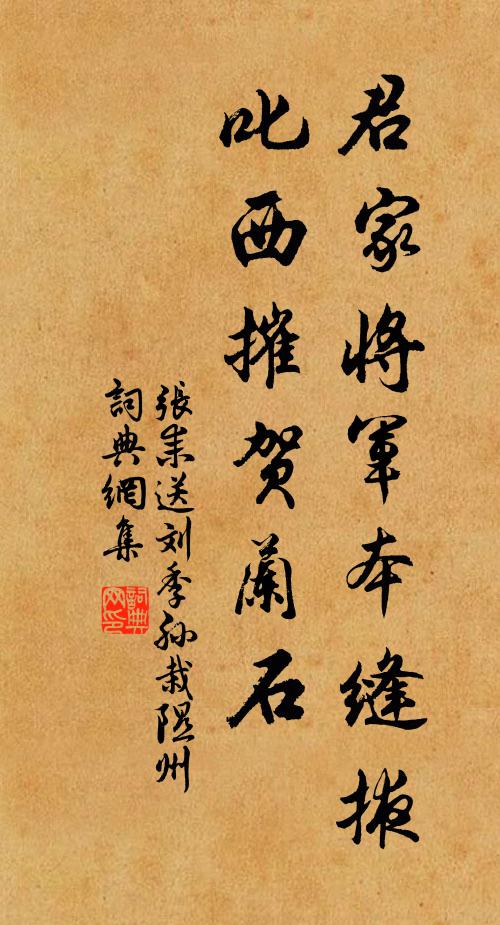 君家将军本缝掖
叱西摧贺兰石
張耒送刘季孙栽隰州
詞典網集
詞典網印